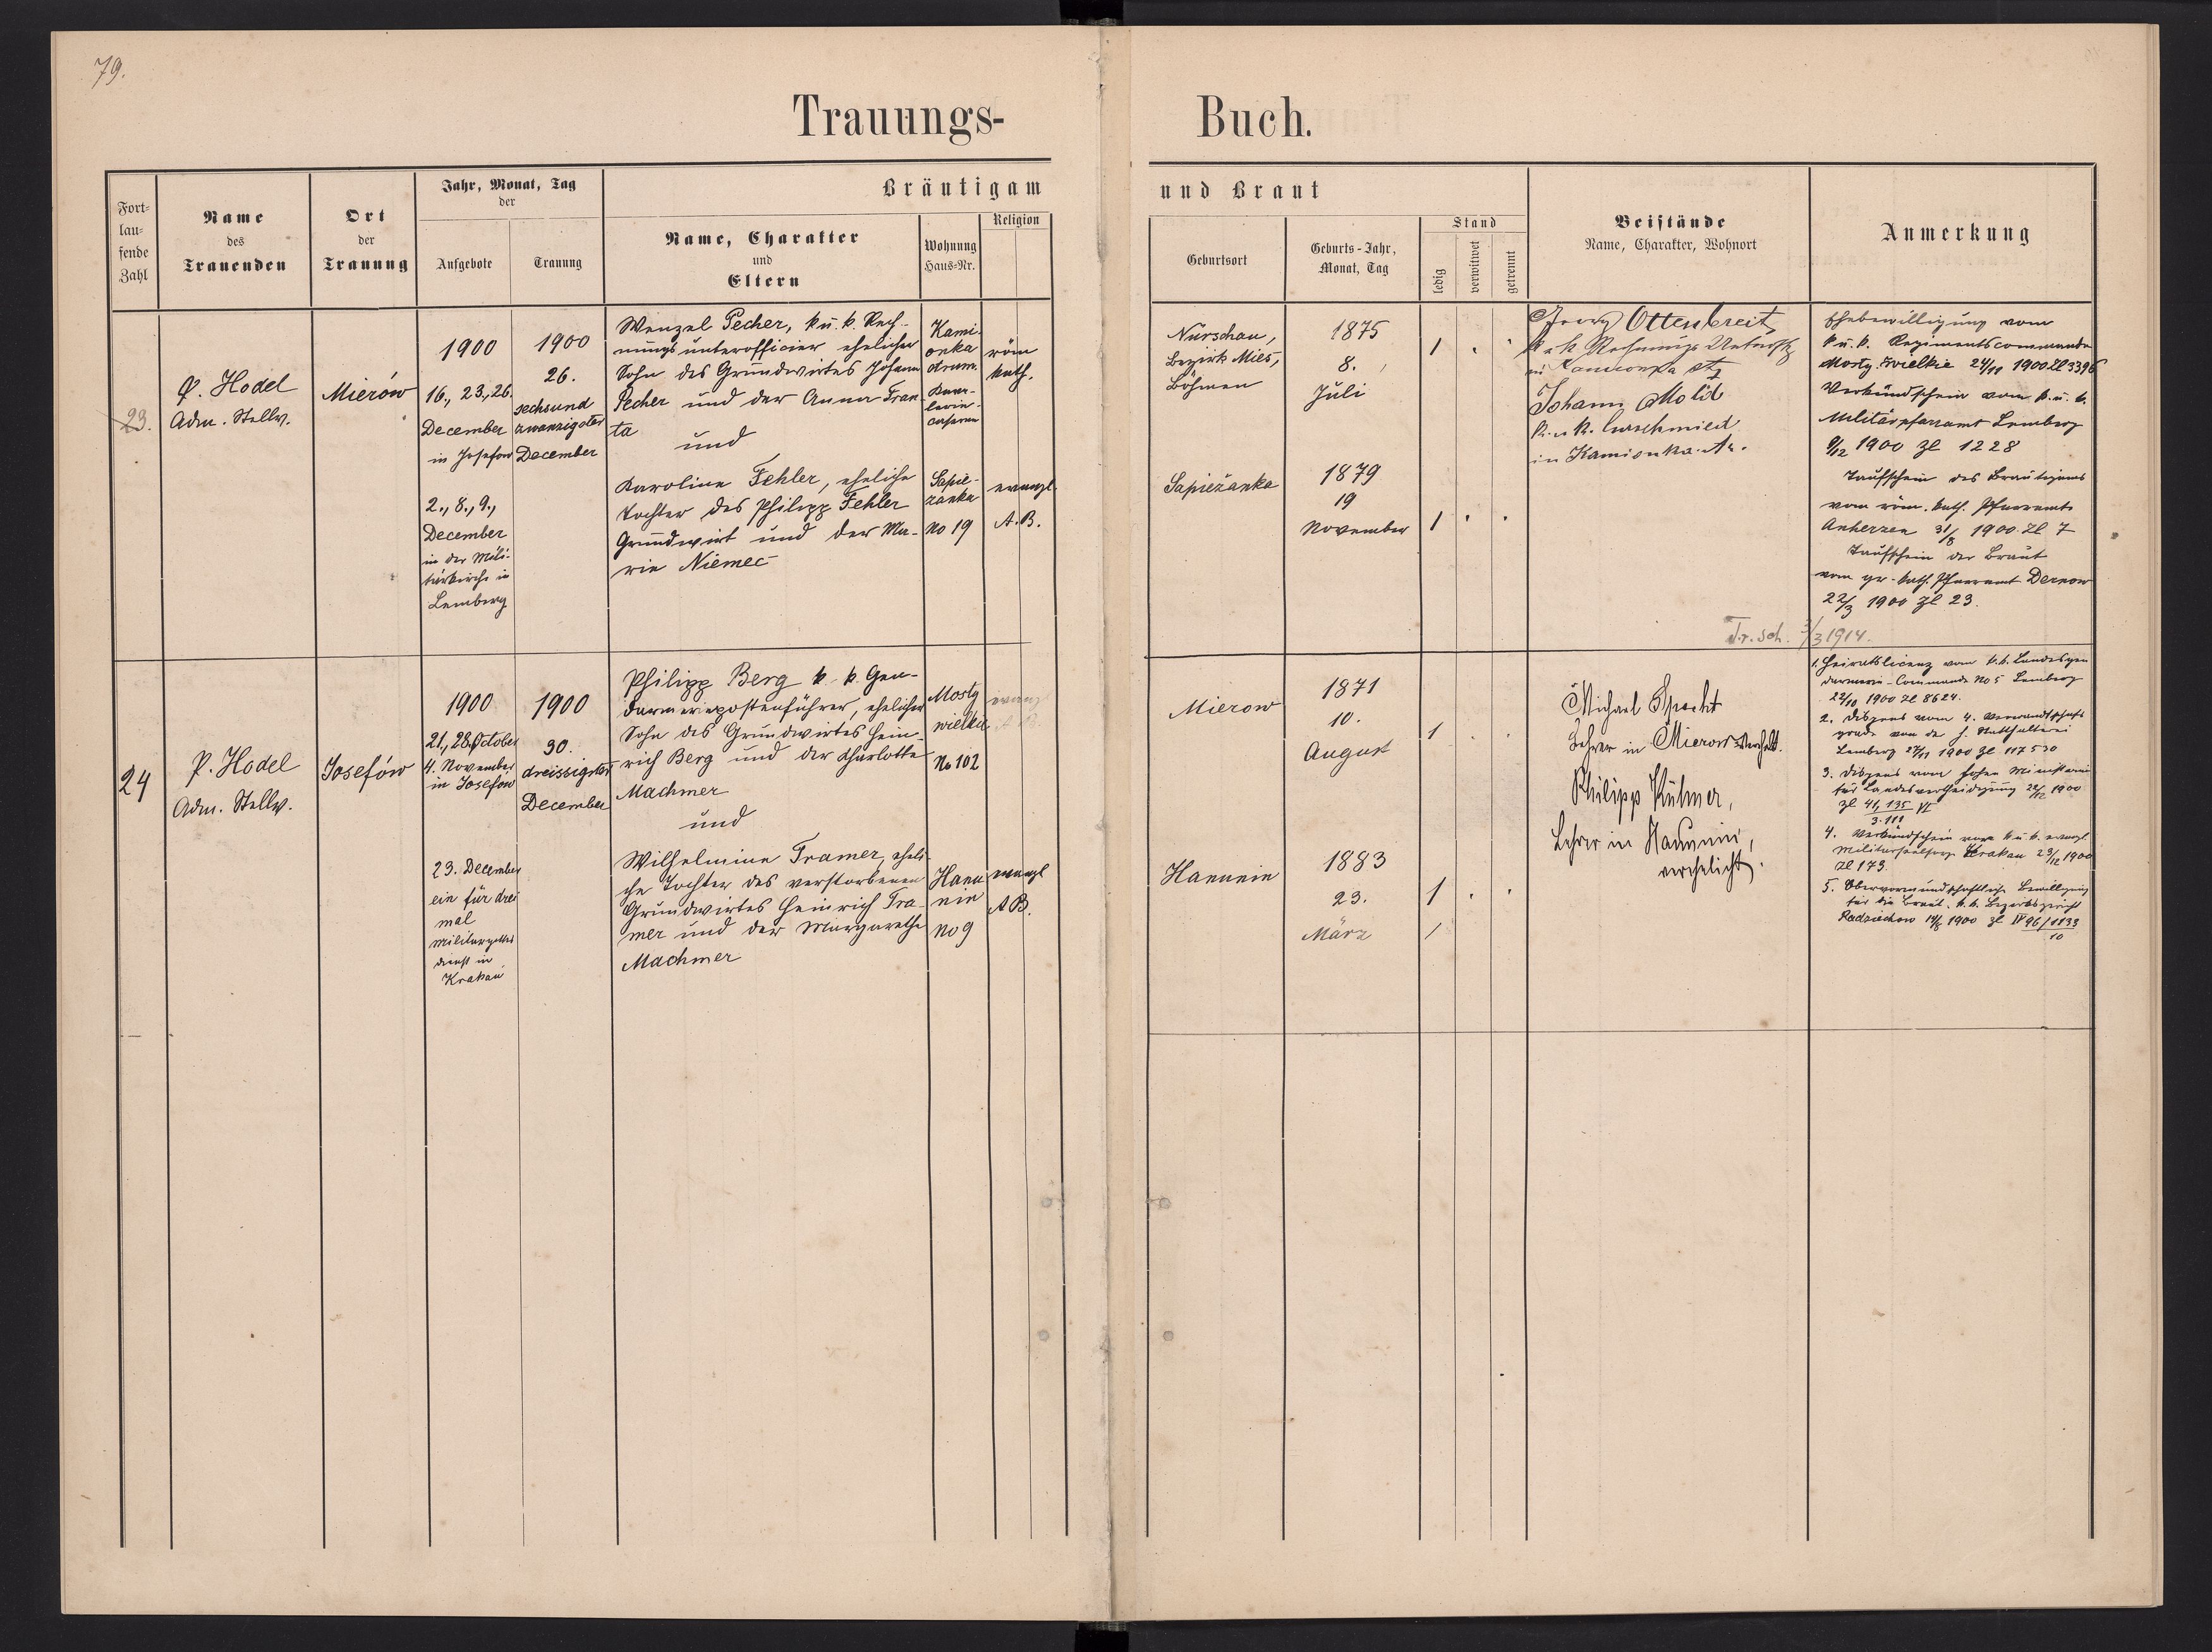 79.
Trauungs-
Buch.
Fort-
lau-
fende
Zahl
Name
des
Trauenden
Ort
der
Trauung
Jahr, Monat, Tag
der
Aufgebote
Trauung
Bräutigam
Name, Charakter
und
Eltern
Wohnung
Haus-Nr.
Religion
und Braut
Geburtsort
Geburts-Jahr,
Monat, Tag
Stand
ledig
verwitwet
getrennt
Beistände
Name, Charakter, Wohnort
Anmerkung
23.
P. Hodel
Adm. Stellv.
Mierów
1900
16., 23., 26.
December
in Josefow
2., 8., 9.,
December
in der Mili-
tärkirche in
Lemberg
1900
26.
sechsund
zwanzigster
December
Wenzel Pecher, k. u. k. Rech-
nungsunterofficier ehelicher
Sohn des Grundwirtes Johann
Pecher und der Anna Fran-
ta
und
Karoline Fehler, eheliche
Tochter des Philipp Fehler
Grundwirt und der Ma-
rie Niemec
Kami-
onka
strum.
Sapie-
żanka
No 19
röm
kath.
evangl.
A. B.
Nürschau,
Bezirk Mies,
Böhmen
Sapieżanka
1875
8.
Juli
1879
19
November
1
1
Georg Ottenbreit
k. u. k. Rechnungs
in Kamionka
Johann
k. u. k. Curschmied
in Kamionka
Ehebewilligung vom
k. u. k. Regimentscommando
Mosty Wielkie 24/11 1900 Zl 3396
Verkündschein vom k. u. k.
Militärpfarramt Lemberg
9/12 1900 Zl 1228
Taufschein des Bräutigams
vom röm. kath. Pfarramte
Anherzen 31/8 1900 Zl 7
Taufschein der Braut
vom gr. kath. Pfarramt Dernow
22/3 1900 Zl 23.
Tr. sch. 3/3 1914.
24
P. Hodel
Adm. Stellv.
Josefów
1900
21., 28. October
4. November
in Josefow
23. December
ein für drei
mal
Militärgottes
dienst in
Krakau
1900
30.
dreissigster
December
Philipp Berg k. k. Gen-
darmeriepostenführer, ehelicher
Sohn des Grundwirtes Hein-
rich Berg und der Charlotte
Machmer
und
Wilhelmine Tramer, eheli-
che Tochter des verstorbenen
Grundwirtes Heinrich Tra-
mer und der Margarethe
Machmer
Mosty
wielkie
No 102
Hanu
nin
No 9
evangl
A B.
Mierow
Hanunin
1871
10.
August
1883
23.
März
1
1
Michael Specht
Lehrer in Mierow
Philipp Kühner,
Lehrer in Hanunin,
verehelicht.
1. Heiratslicenz vom k. k. Landesgen
darmerie-Commando No 5 Lemberg
22/10 1900 Zl 8624.
2. Dispens vom 4. Verwandtschafts
grade von der h. Statthalterei
Lemberg 27/11 1900 Zl 117530
3. Dispens vom hohen Ministerium
für Landesvertheidigung 22/12 1900
4. Verkündschein vom k. u. k. evangl.
Militärseelsorge Krakau 23/12 1900
Zl 173.
5. Obervormundschaftliche Bewilligung
für die Braut. k. k. Bezirksgericht